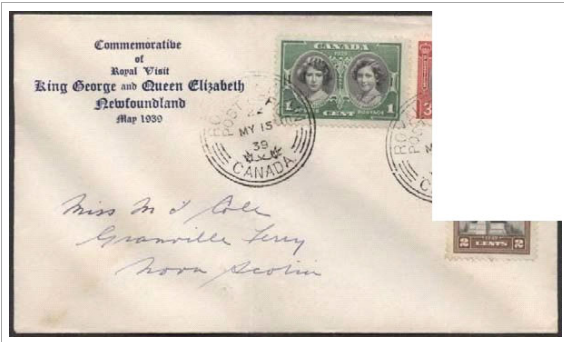 Commemorative
of
Royal Visit
King George and Queen Elizabeth
Newfoundland
May 1939
CANADA
1 CENT POSTAGE 1
3
MY 15
39
CANADA
Miss M J Cole
Granville Ferry
Nova Scotia
2 CENTS 2